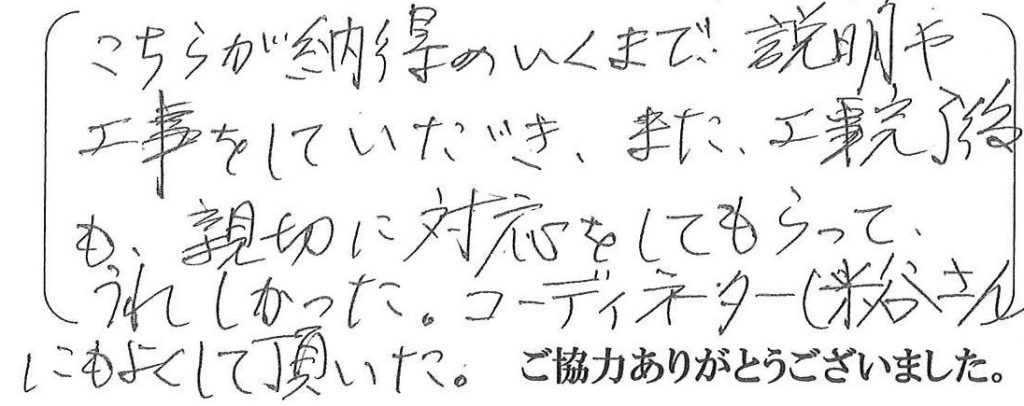 こちらが納得のいくまで、説明や
工事をしていただき、また、工事完了後
も、親切に対応をしてもらって、
うれしかった。コーディネーター(米谷さん)
にもよくして頂いた。 ご協力ありがとうございました。